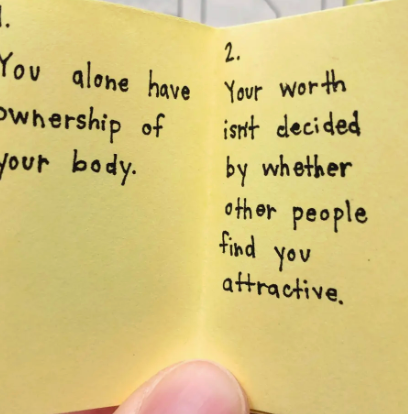 1.
You alone have
ownership of
your body.
2.
Your worth
isn't decided
by whether
other people
find you
attractive.